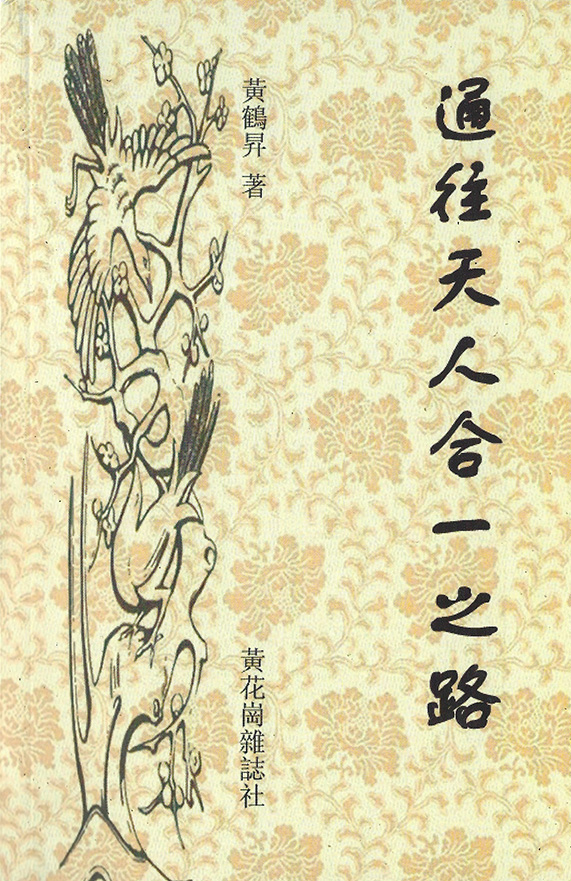 通往天人合一之路
黃鶴昇 著
黃花崗雜誌社